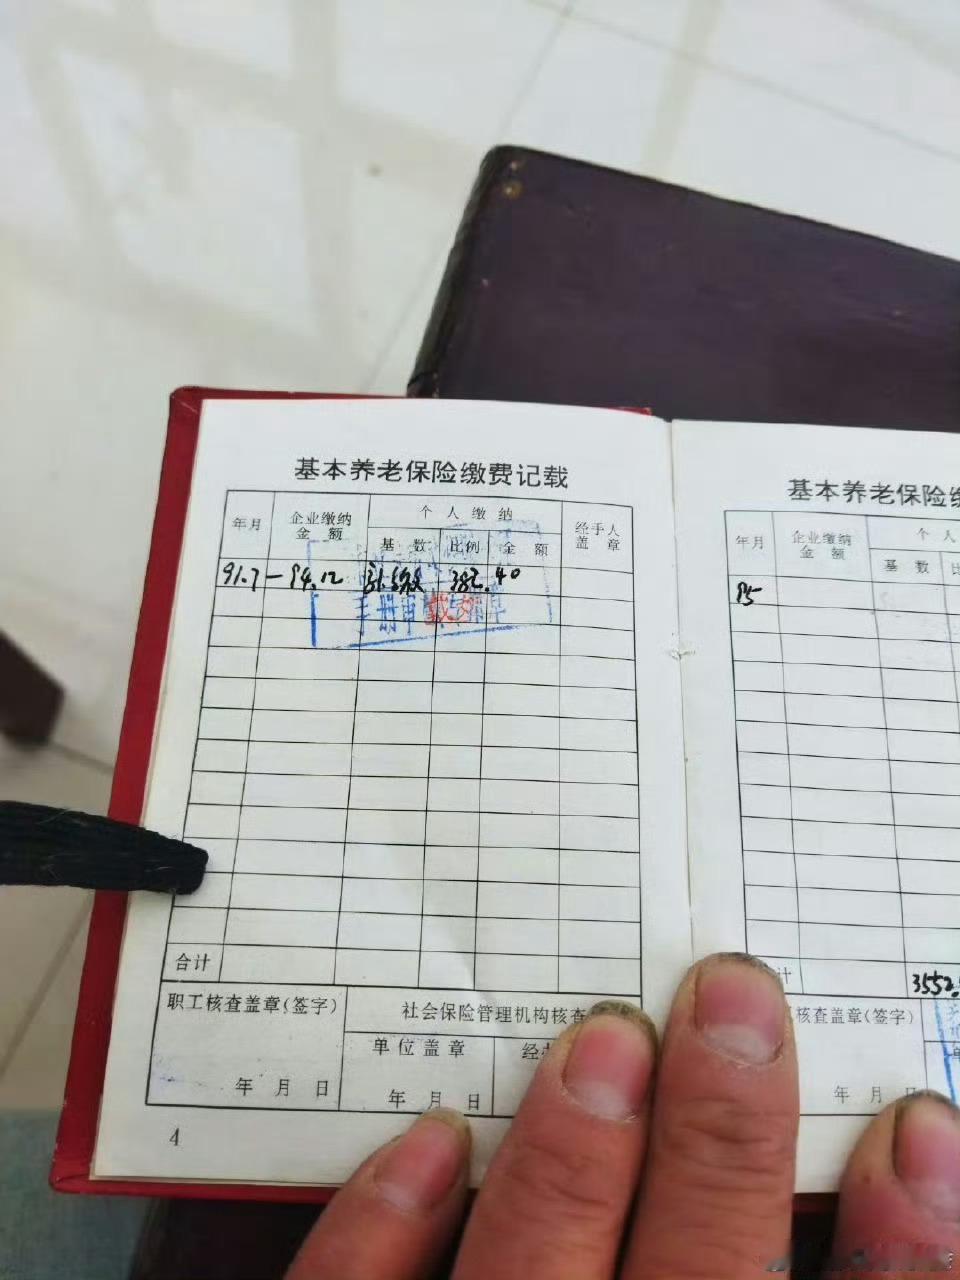 基本养老保险缴费记载
年月
企业缴纳
金额
个人缴纳
基数
比例
金额
经手人
盖章
91.7－94.12
382.40
手册审
合计
职工核查盖章(签字)
年月日
社会保险管理机构核查
单位盖章
年月日
4
基本养老保险
年月
企业缴纳
金额
个人
基数
95
3552.
核查盖章(签字)
年月